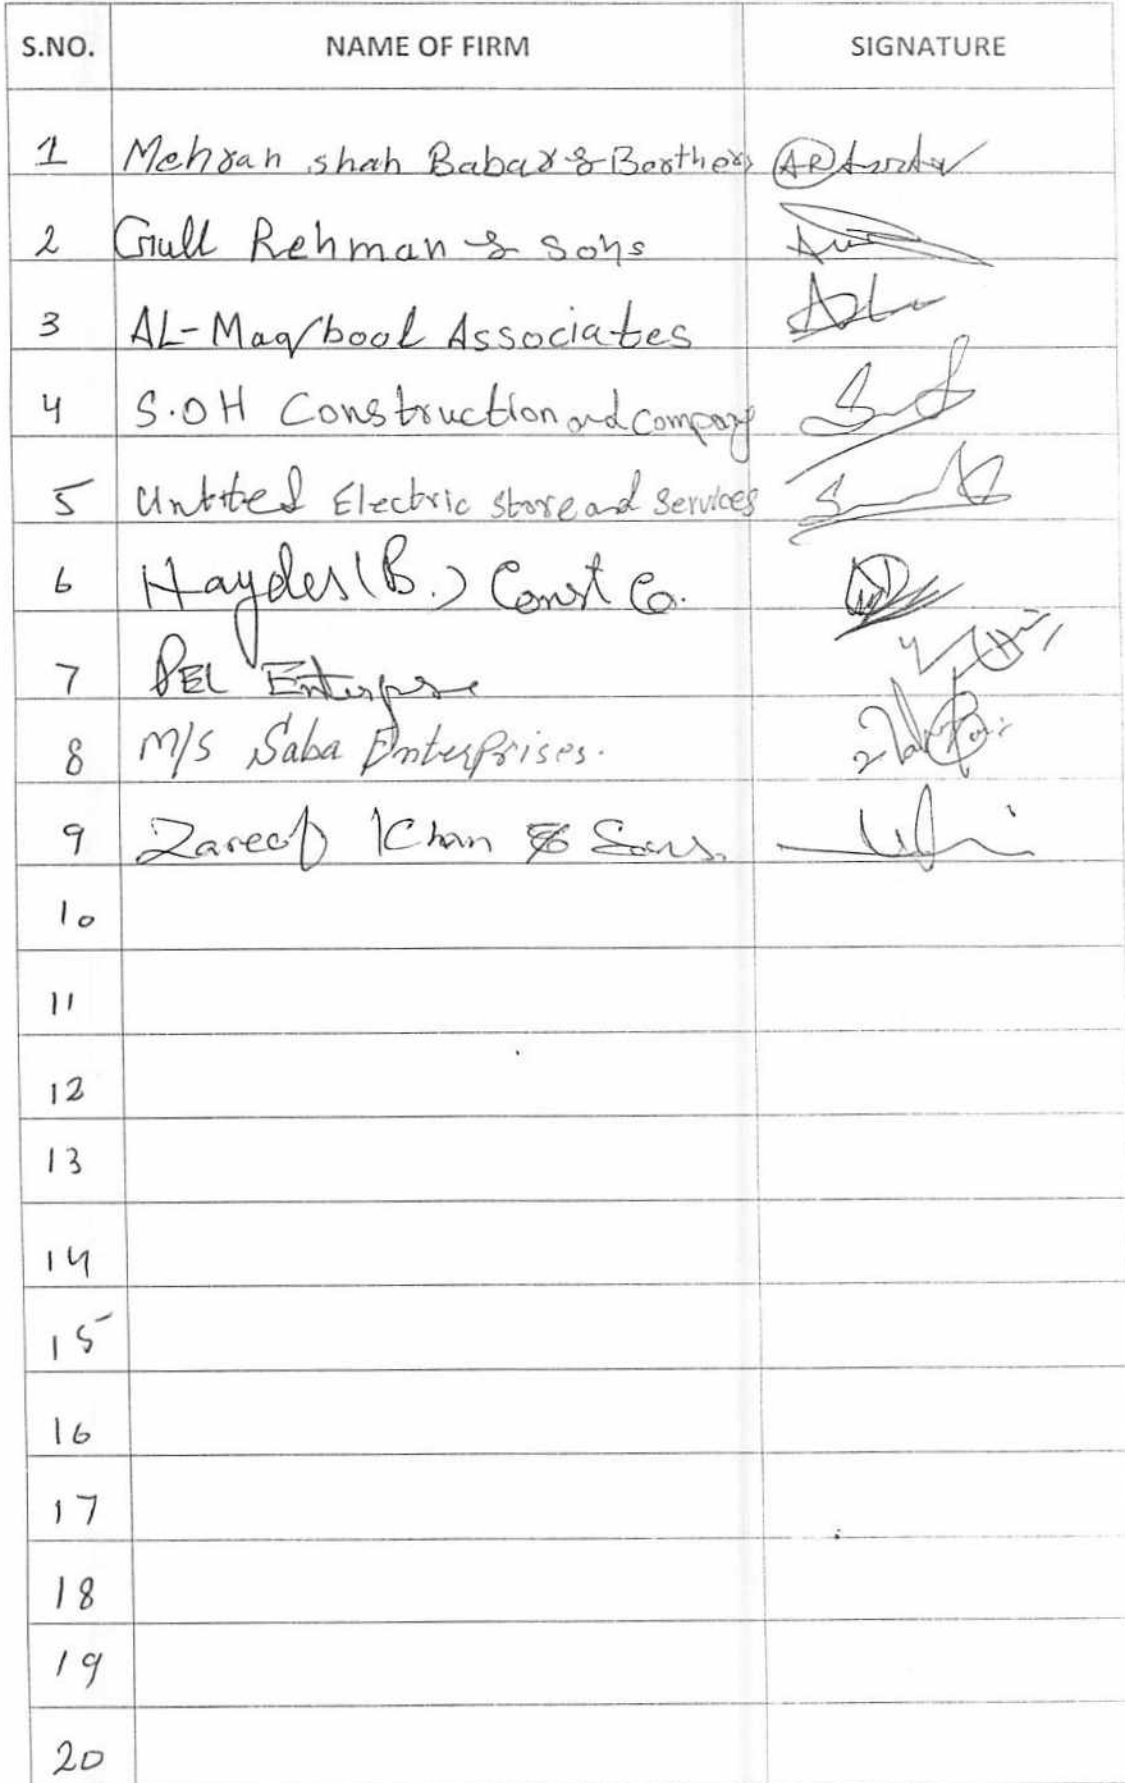 S.NO. NAME OF FIRM SIGNATURE
1 Mehran shah Babar & Borthers
2 Gull Rehman & Sons
3 AL-Maqbool Associates
4 S.OH Construction and Company
5 Untited Electric store and Services
6 Hayder (B.) Const Co.
7 PEL Enterpse
8 M/S Saba Enterprises.
9 Zareef Khan & Sons.
10
11
12
13
14
15
16
17
18
19
20